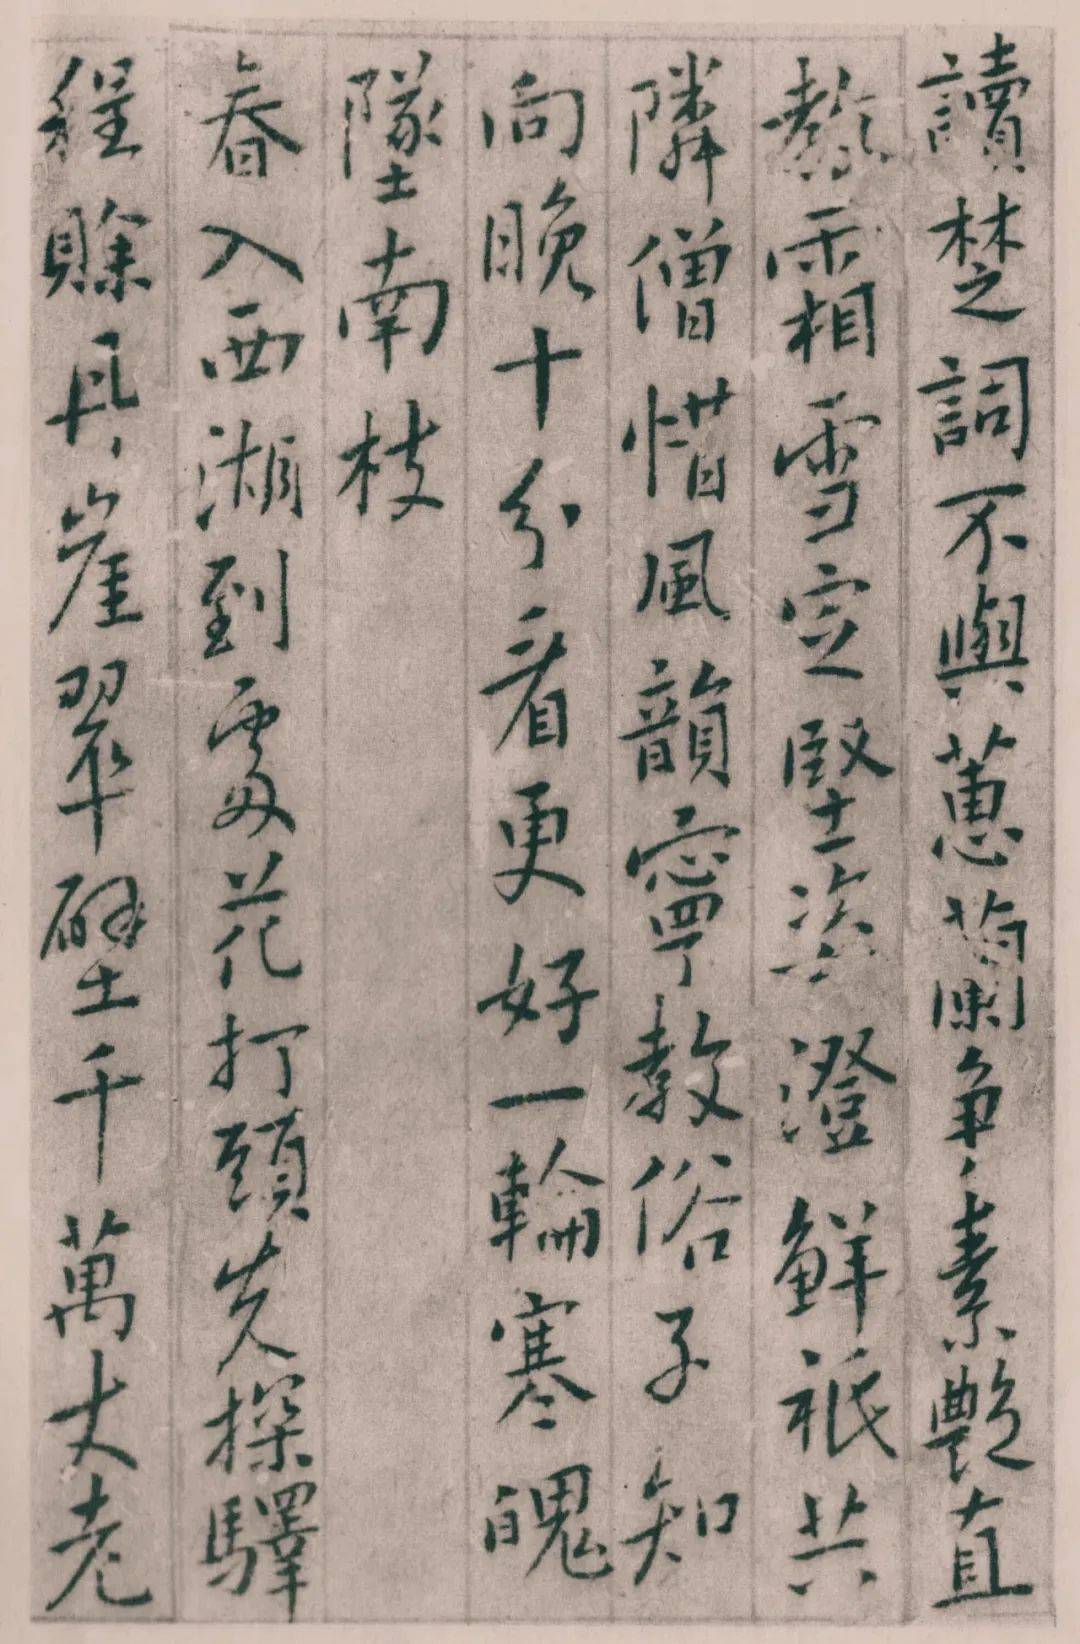 讀楚詞不與蕙蘭爭素艷直
霜相雪定堅姿澄鮮祇共
隣僧惜風韻寧教俗子知
向晚十分看更好一輪寒魄
墜南枝
春入西湖到處花打頭先探驛
程賒丹崖翠壁千萬丈老